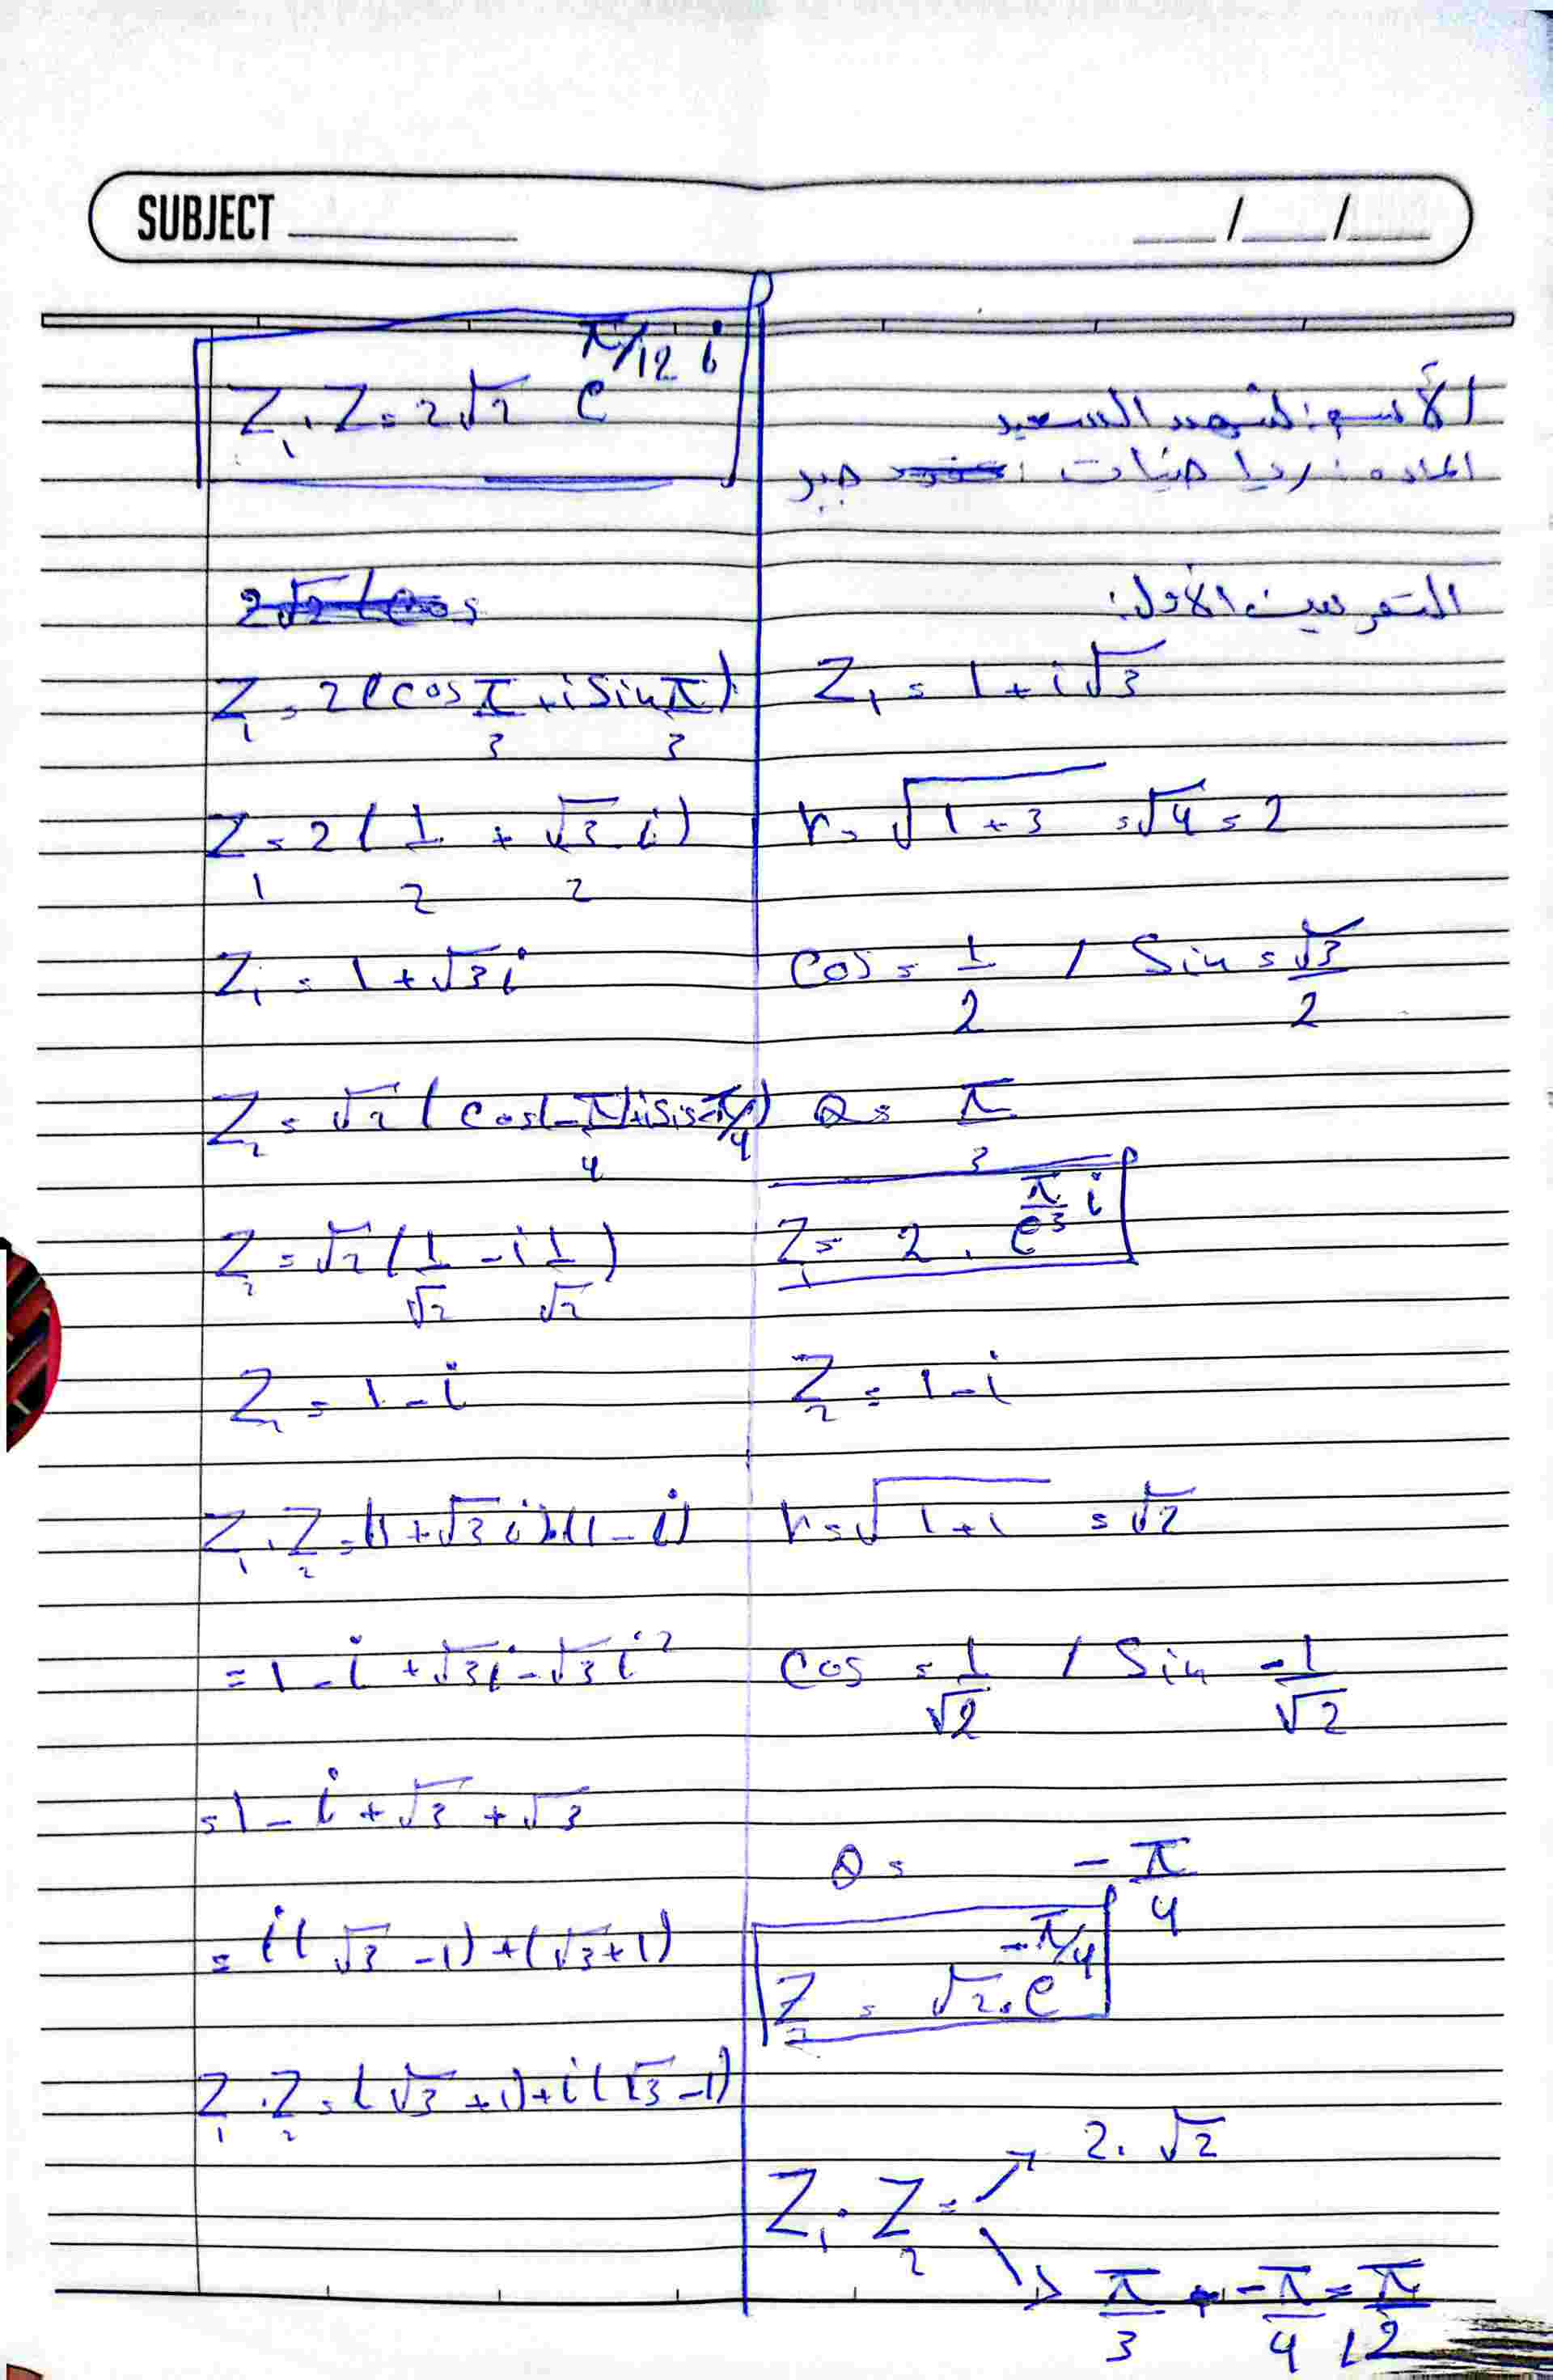 SUBJECT / /
الأسم: شهد السعيد
المادة: رياضيات: جبر
التمرين الأول:
Z₁ = 1 + i√3
r = √(1+3) = √4 = 2
Cos = 1/2 / Sin = √3/2
θ = π/3
Z₁ = 2 . e^(π/3 i)
Z₂ = 1 - i
r = √(1+1) = √2
Cos = 1/√2 / Sin -1/√2
θ = -π/4
Z₂ = √2 . e^(-π/4)
Z₁ . Z₂ =
2 . √2
π/3 + -π/4 = π/12
Z₁ . Z = 2√2 e^(π/12 i)
2√2 (Cos
Z₁ = 2 (cos π/3 + i Sin π/3)
Z₁ = 2 (1/2 + √3/2 i)
Z₁ = 1 + √3 i
Z₂ = √2 (cos(-π/4) + i Sin -π/4)
Z₂ = √2 (1/√2 - i 1/√2)
Z₂ = 1 - i
Z₁ . Z₂ = (1 + √3 i) . (1 - i)
= 1 - i + √3 i - √3 i²
= 1 - i + √3 + √3
= i(√3 - 1) + (√3 + 1)
Z₁ . Z₂ = (√3 + 1) + i(√3 - 1)